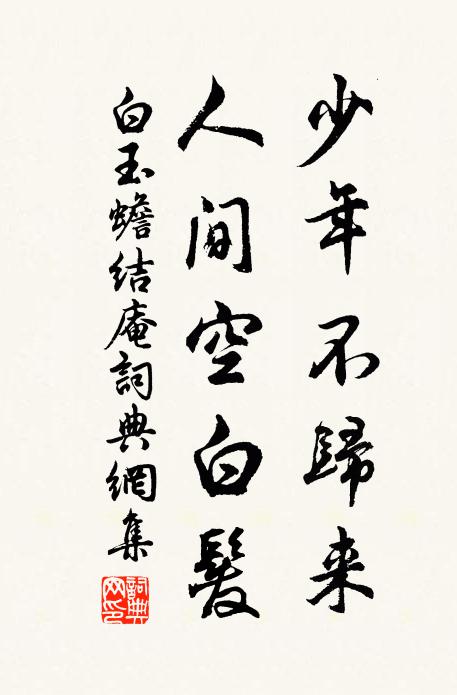 少年不歸来
人间空白髮
白玉蟾结庵詞典網集
詞典網印